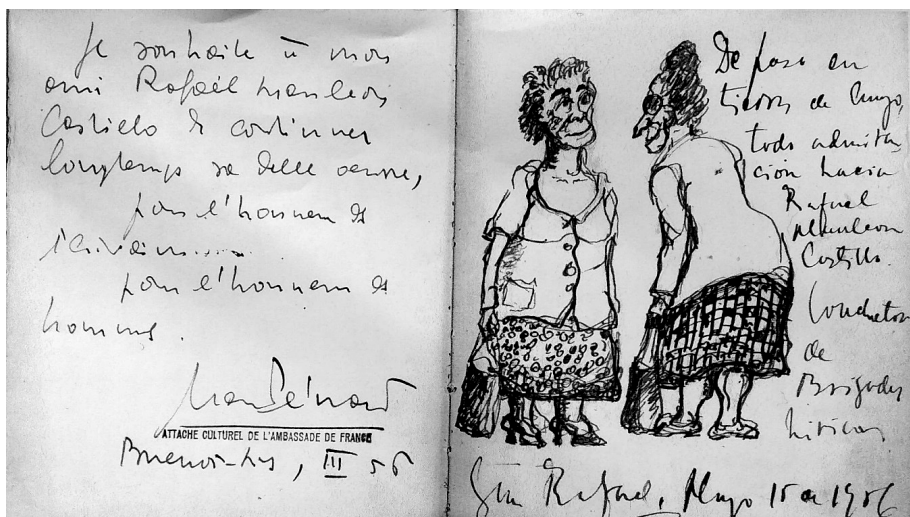 Je souhaite à mon
ami Rafaël Mauleón
Castillo de continuer
longtemps sa belle oeuvre,
pour l'honneur de
pour l'honneur de
hommes.
ATTACHE CULTUREL DE L'AMBASSADE DE FRANCE
Buenos-Ayres, III 56
De paso en
tierras de Cuyo,
toda admira-
ción hacia
Rafael
Mauleon
Castillo.
Conductor
de
Brigadas
líricas
San Rafael, Mayo 15 de 1956